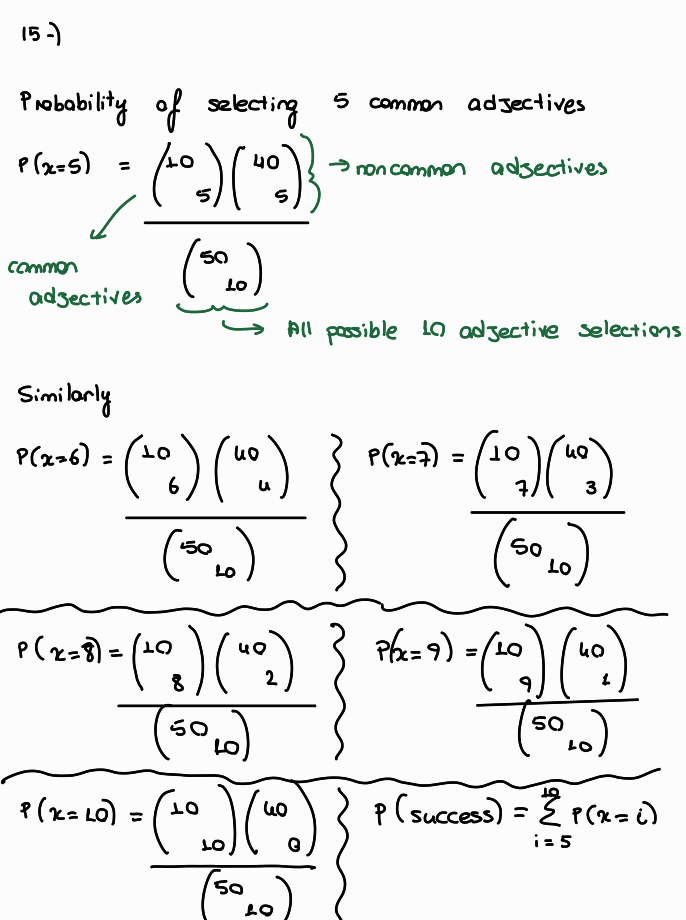 15-)
Probability of selecting 5 common adjectives
P(x=5) = (10 5) (40 5) → noncommon adjectives
(50 10)
common
adjectives
→ All possible 10 adjective selections
Similarly
P(x=6) = (10 6) (40 4)
(50 10)
P(x=7) = (10 7) (40 3)
(50 10)
P(x=8) = (10 8) (40 2)
(50 10)
P(x=9) = (10 9) (40 1)
(50 10)
P(x=10) = (10 10) (40 0)
(50 10)
P(success) = 10 Σ i=5 P(x=i)